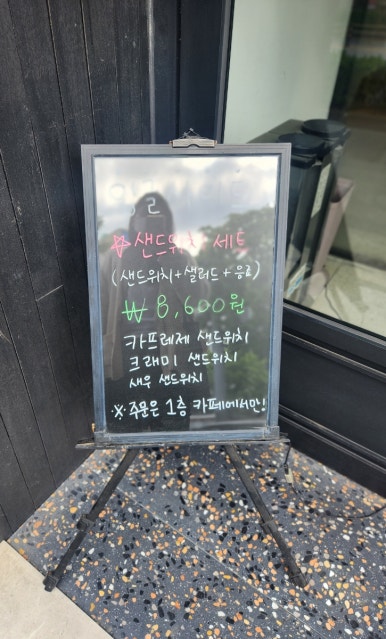 ☆ 샌드위치 세트
(샌드위치+샐러드+음료)
₩ 8,600원
카프레제 샌드위치
크래미 샌드위치
새우 샌드위치
※주문은 1층 카페에서만!